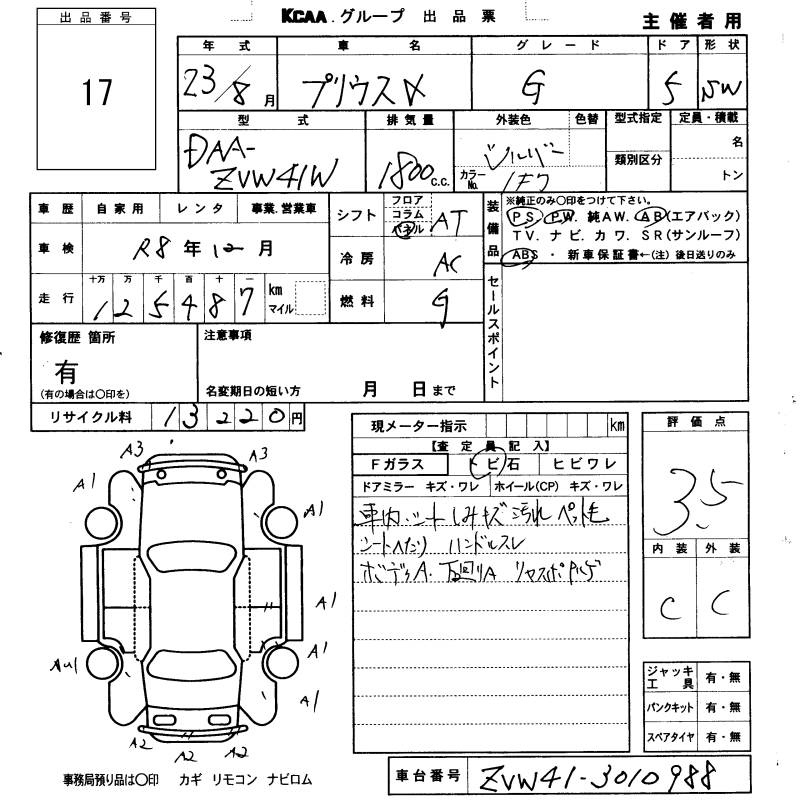 KCAA.グループ 出品票
主催者用
出品番号
17
年式 車名 グレード ドア 形状
23/8月 プリウスα G 5 SW
型式 排気量 外装色 色替 型式指定 定員・積載
DAA-ZVW41W 1800c.c. シルバー カラーNo. 1F7 類別区分 名 トン
車歴 自家用 レンタ 事業.営業車
車検 R8年12月
走行 十万 万 千 百 十 一 km マイル
1 2 5 4 8 7
シフト フロア コラム パネル AT
冷房 AC
燃料 G
装備品
※純正のみ○印をつけて下さい。
PS. PW. 純AW. AB(エアバック)
TV. ナビ. カワ. SR(サンルーフ)
ABS ・ 新車保証書←(注)後日送りのみ
セールスポイント
修復歴 箇所
有
(有の場合は○印を)
注意事項
名変期日の短い方 月 日まで
リサイクル料 13220円
現メーター指示 km
【査定員記入】
Fガラス トビ石 ヒビワレ
ドアミラー キズ・ワレ ホイール(CP) キズ・ワレ
車内、シートしみキズ 汚れ ペット毛
シートへたり ハンドルスレ
ボディA. 下回りA
評価点
3.5
内装 外装
C C
A3 A3
A1 A1
A1
AU1 A1
A1
A2 A2 A2
ジャッキ工具 有・無
パンクキット 有・無
スペアタイヤ 有・無
事務局預り品は○印 カギ リモコン ナビロム
車台番号 ZVW41-3010988